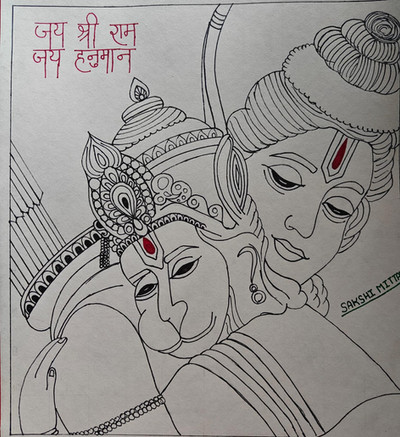 जय श्री राम
जय हनुमान
SAKSHI MITTAL